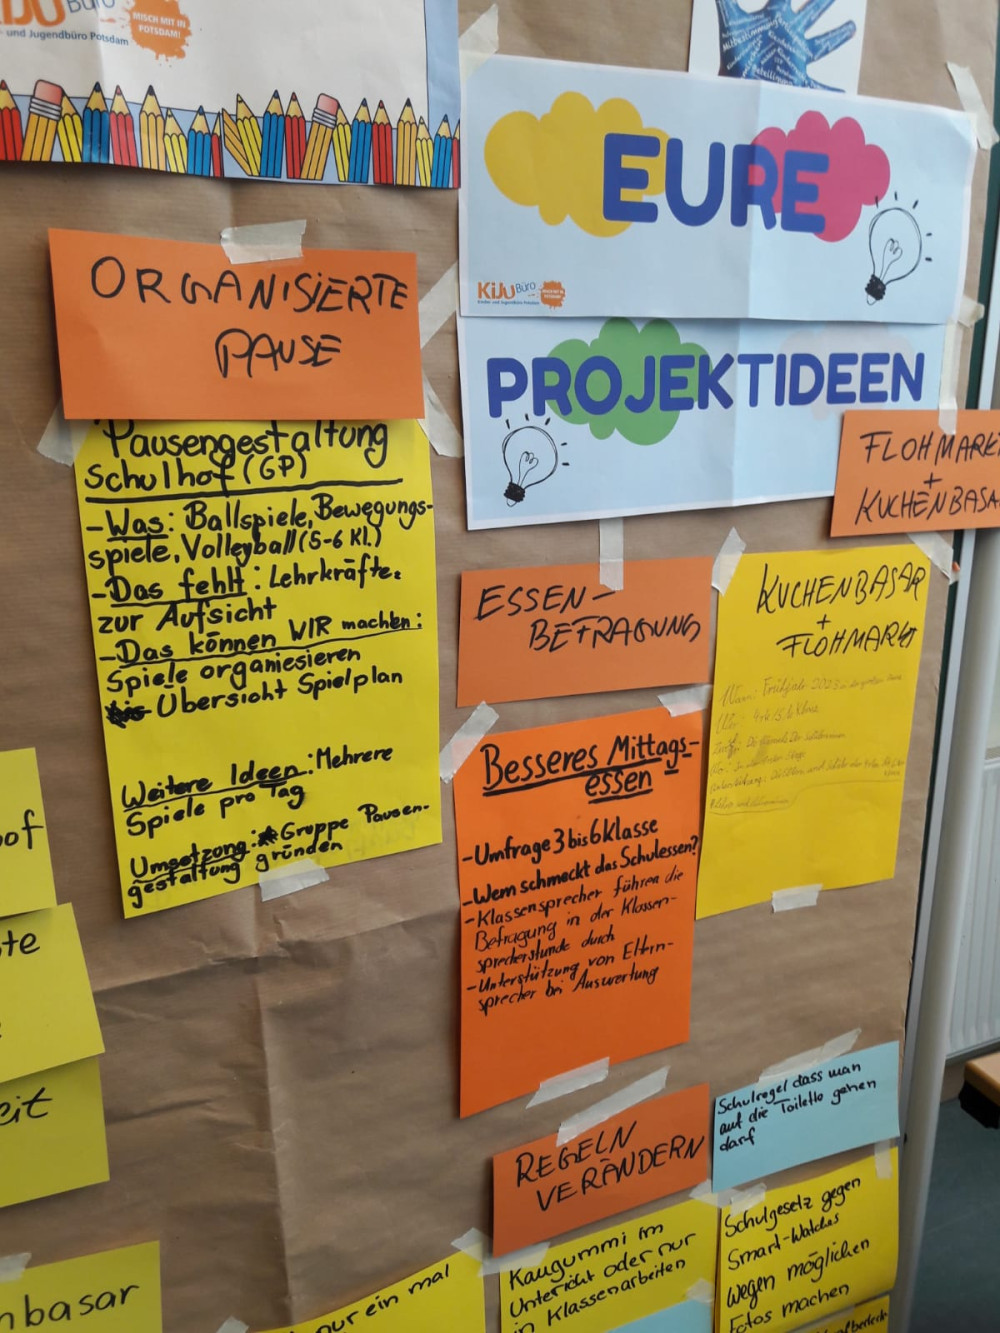 KiJu Büro
MISCH MIT IN
POTSDAM!
und Jugendbüro Potsdam
Mitbestimmung
EURE
KiJu Büro
Kinder- und Jugendbüro Potsdam
PROJEKTIDEEN
ORGANISIERTE
PAUSE
Pausengestaltung
Schulhof (GP)
- Was: Ballspiele, Bewegungs-
spiele, Volleyball (5-6 Kl.)
- Das fehlt: Lehrkräfte
zur Aufsicht
- Das können WIR machen:
Spiele organiesieren
Übersicht Spielplan
Weitere Ideen: Mehrere
Spiele pro Tag
Umsetzung: Gruppe Pausen-
gestaltung gründen
FLOHMARKT
+
KUCHENBASA
ESSEN-
BEFRAGUNG
Besseres Mittags-
essen
- Umfrage 3 bis 6 Klasse
- Wem schmeckt das Schulessen?
- Klassensprecher führen die
Befragung in der Klassen-
sprecherstunde durch
- Unterstützung von Eltern-
sprecher bei Auswertung
KUCHENBASAR
+
FLOHMARKT
Wann: Frühjahr 2023 in der
Wer: 4
REGELN
VERÄNDERN
Schulregel dass man
auf die Toilette gehen
darf
Schulgesetz gegen
Smart-Watches
wegen möglichen
Fotos machen
Kaugummi im
Unterricht oder nur
in Klassenarbeiten
nur ein mal
of
te
eit
nbasar